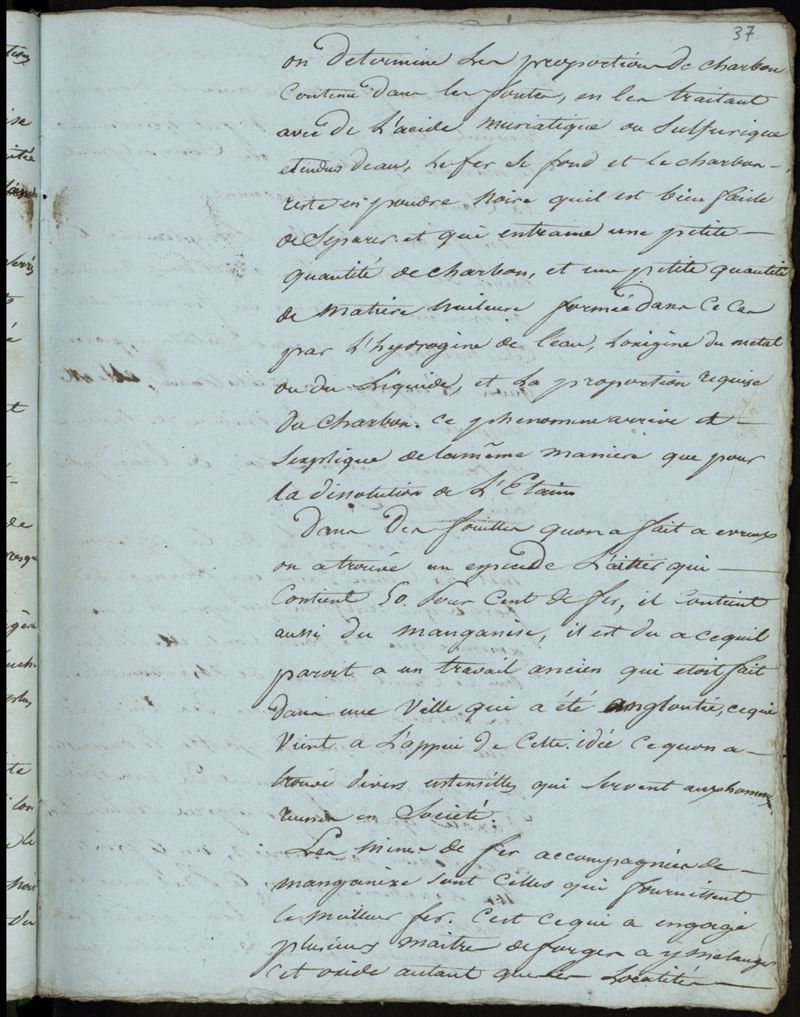 37
on determine les proportions de charbon
Contenu dans les fontes, en les traitant
avec de L'acide muriatique ou sulfurique
etendus deau, le fer se fond et le charbon
reste en poudre noire quil est bien facile
de separer et qui entraine une petite
quantité de charbon, et une petite quantité
de matière huileuse formée dans ce cas
par L'hydrogène de leau, Loxigène du metal
ou du Liquide, et La proportion requise
du charbon. ce phenomene arrive et
sexplique de la même maniere que pour
la dissolution de L'Etain
Dans des fouilles quon a fait a evreux
on a trouvé un espece de Laitier qui
Contient 50. pour Cent de fer, il contient
aussi du manganèse, il est du a cequil
paroit a un travail ancien qui etoit fait
dans une Ville qui a été angloutie, cequi
Vient a L'appui de Cette idée cequon a
trouvé divers ustensilles qui servent aux hommes
reunis en Société.
Les mines de fer accompagnées de
manganèse sont Celles qui fournissent
le meilleur fer. c'est cequi a engagé
plusieurs maitres de forges a y melanger
cet oxide autant que les Localités